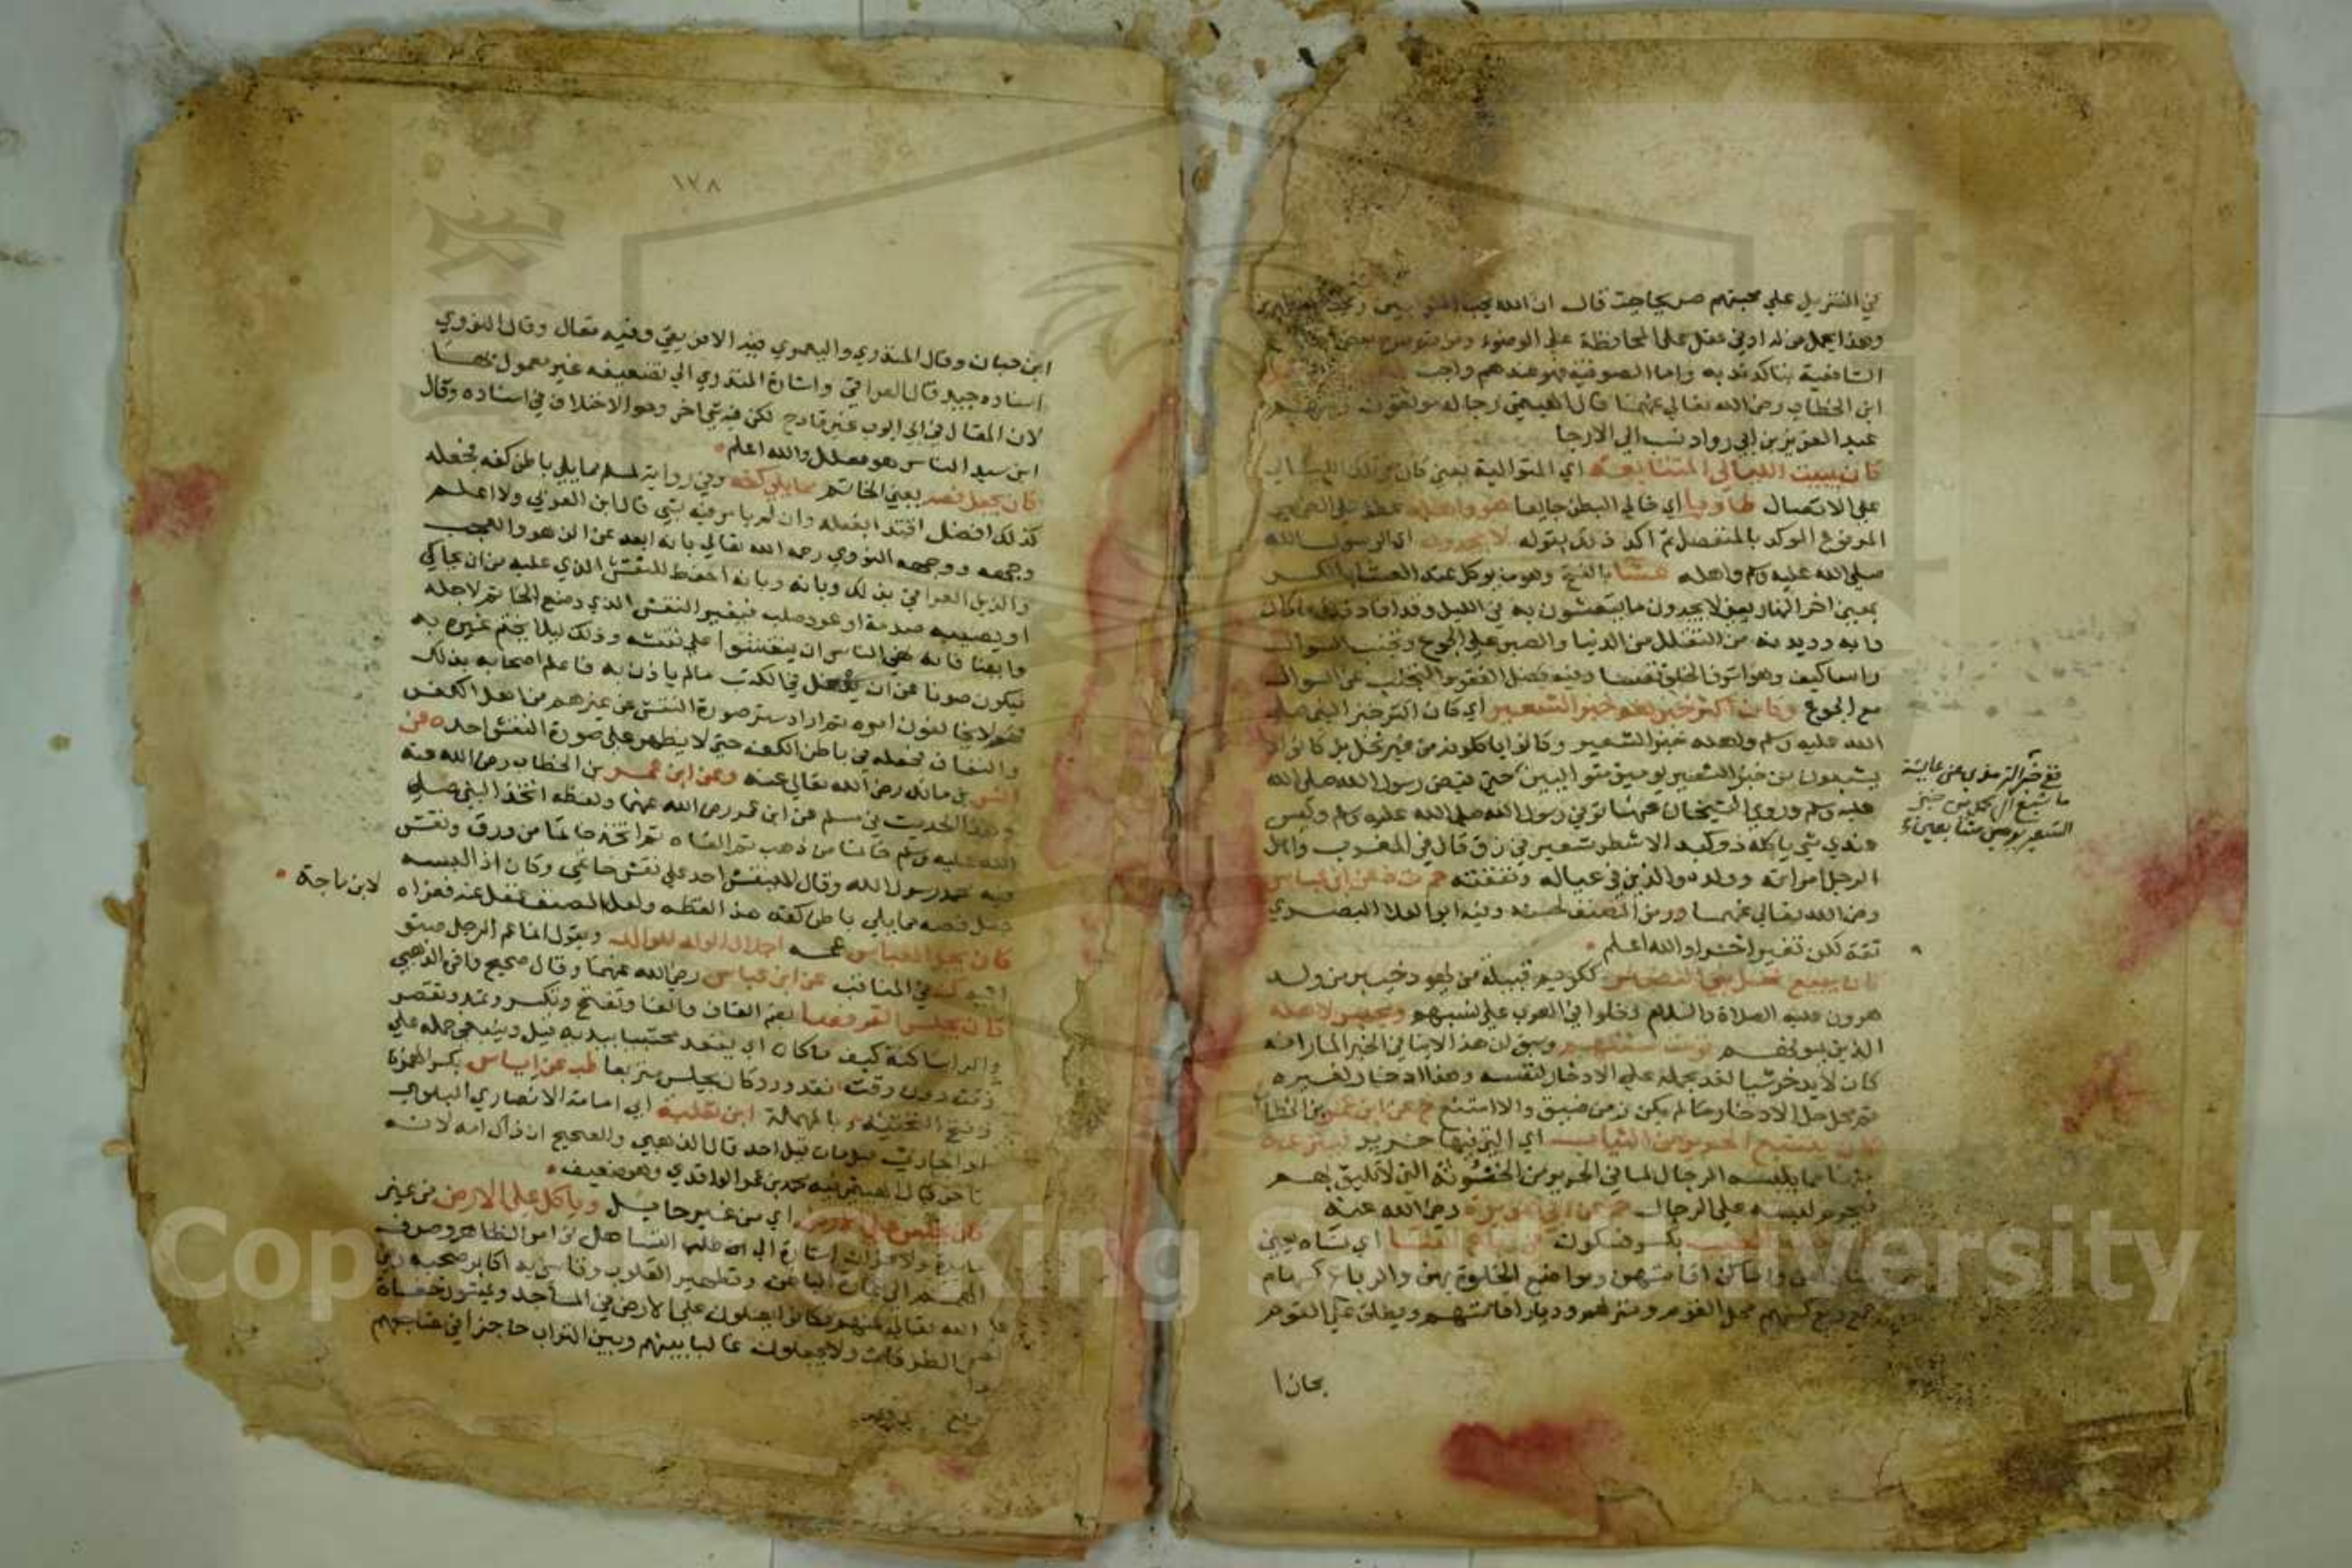 في التنزيل على محبتهم صريحا حيث قال ان الله يحب التوابين ويحب
وهذا يحمل من له ادنى عقل على المحافظة على الوضوء ومن ثم
الشافعية بتاكد ندبه واما الصوفية فهو عندهم واجب
ابن الخطاب رضي الله تعالى عنهما قال الهيثمي رجاله موثقون
عبد العزيز بن ابي رواد نسب الى الارجا
كان يبيت الليالي المتتابعة اي المتوالية يعني كان
على الاتصال طاويا اي خالي البطن جايعا هو واهله عطف على الضمير
المرفوع الموكد بالمنفصل ثم اكد ذلك بقوله لا يجدون اي الرسول الله
صلى الله عليه وسلم واهله عشا بالفتح وهو ما يوكل عند العشا بالكسر
بمعنى اخر النهار يعني لا يجدون ما يتعشون به في الليل وقد افاد ذلك ما كان
دابه وديدنه من التقلل من الدنيا والصبر على الجوع وتجنب السوال
راسا كيف وهو اشرف الخلق نفسا وفيه فضل الفقر والتجنب عن السوال
مع الجوع وكان اكثر خبزهم خبز الشعير اي كان اكثر خبز النبي صلى
الله عليه وسلم واهله خبز الشعير وكانوا ياكلونه من غير نخل بل كانوا لا
يشبعون من خبز الشعير يومين متواليين حتى قبض رسول الله صلى الله
عليه وسلم وروى الشيخان عن عائشة توفي رسول الله صلى الله عليه وسلم وليس
عندي شي ياكله ذو كبد الا شطر شعير في رق قال في المغرب واهل
الرجل امراته وولده والذين في عياله ونفقته حم ت ه عن ابن عباس
رضي الله تعالى عنهما ورمز المصنف لحسنه وفيه ابو العلا البصري
ثقة لكن تغير اخرا والله اعلم
كان يبيع نخل بني النضير ككريم قبيلة من يهود خيبر من ولد
هرون عليه الصلاة والسلام دخلوا في العرب على نسبهم ويحبس لاهله
الذين يمونهم قوت سنتهم وسبق ان هذا لا ينافي الخبر المار انه
كان لا يدخر شيا لغد بحمله على الادخار لنفسه وهذا ادخار لغيره
ثم محل حل الادخار ما لم يكن زمن ضيق والا امتنع خ عن ابن عمر بن الخطاب
كان يتتبع الحرير من الثياب اي التي فيها حرير فينزعه
منها مما يلبسه الرجال لما في الحرير من الخنوثة التي لا تليق بهم
فيحرم لبسه على الرجال حم عن ابي هريرة رضي الله عنه
الطيب بكسر فسكون في رباع النسا اي نساه يعني
واماكن اقامتهن ومواضع الخلوة بهن والرباع كسهام
جمع ربع كسهم محل القوم ومنزلهم وديار اقامتهم ويطلق على القوم
مجازا
ففي خبر الترمذي عن عايشة
ما شبع ال محمد من خبز
الشعير يومين متتابعين
١٢٨
ابن حبان وقال المنذري واليعمري فيه الافريقي وفيه مقال وقال النووي
اسناده جيد قال العراقي واشارة المنذري الى تضعيفه غير معمول بها
لان المقال في ابي ايوب غير قادح لكن فيه شي اخر وهو الاختلاف في اسناده وقال
ابن سيد الناس هو معلل والله اعلم
كان يجعل فصه يعني الخاتم مما يلي كفه وفي رواية لمسلم مما يلي باطن كفه فجعله
كذلك افضل اقتدا بفعله وان لم يامر فيه بشي قال ابن العربي ولا اعلم
وجهه ووجهه النووي رحمه الله تعالى بانه ابعد عن الزهو والعجب
والزين العراقي بذلك وبانه احفظ للنقش الذي عليه من ان يحاكى
او يصيبه صدمة او عود صلب فيغير النقش الذي وضع الخاتم لاجله
وايضا فانه نهى الناس ان ينقشوا على نقشه وذلك ليلا يختم غيره به
فيكون صونا عن ان يدخل في الكتب ما لم ياذن به فاعلم اصحابه بذلك
فهم لا يخالفون امره ثم اراد ستر صورة النقش عن غيرهم من اهل الكفر
والنفاق فجعله في باطن الكف حتى لا يظهر على صورة النقش احد ه عن
انس بن مالك رضي الله تعالى عنه وعن ابن عمر بن الخطاب رضي الله عنه
وهذا الحديث في مسلم عن ابن عمر رضي الله عنهما ولفظه اتخذ النبي صلى
الله عليه وسلم خاتما من ذهب ثم القاه ثم اتخذ خاتما من ورق ونقش
فيه محمد رسول الله وقال لا ينقش احد على نقش خاتمي وكان اذا لبسه
جعل فصه مما يلي باطن كفه هذا لفظه ولعل المصنف غفل عنه فعزاه
لابن ماجة
كان يجل العباس عمه اجلال الولد للوالد ويقول انما عم الرجل صنو
ابيه ك في المناقب عن ابن عباس رضي الله عنهما وقال صحيح واقره الذهبي
كان يجلس القرفصا بضم القاف والفا وتفتح وتكسر وتمد وتقصر
والرا ساكنة كيف ما كان اي يقعد محتبيا بيديه قيل وينبغي حمله على
وقت دون وقت فقد ورد كان يجلس متربعا طب عن اياس بكسر الهمزة
وفتح التحتية بالمهملة ابن ثعلبة ابي امامة الانصاري البلوي
او الحارثي قيل مات قبل احد قال الذهبي والصحيح ان ذاك امه لانه
تاخر قال الهيثمي فيه محمد بن عمر الواقدي وهو ضعيف
كان يجلس على الارض اي من غير حايل وياكل على الارض من غير
مايدة ولا خوان اشارة الى انه طلب التساهل في امر الظاهر وصرف
الهمم الى عمارة الباطن وتطهير القلوب وتاسى به اكابر صحبه رضي
الله تعالى عنهم فكانوا يصلون على الارض في المساجد ويمشون حفاة
في الطرقات ولا يجعلون غالبا بينهم وبين التراب حاجزا في مضاجعهم